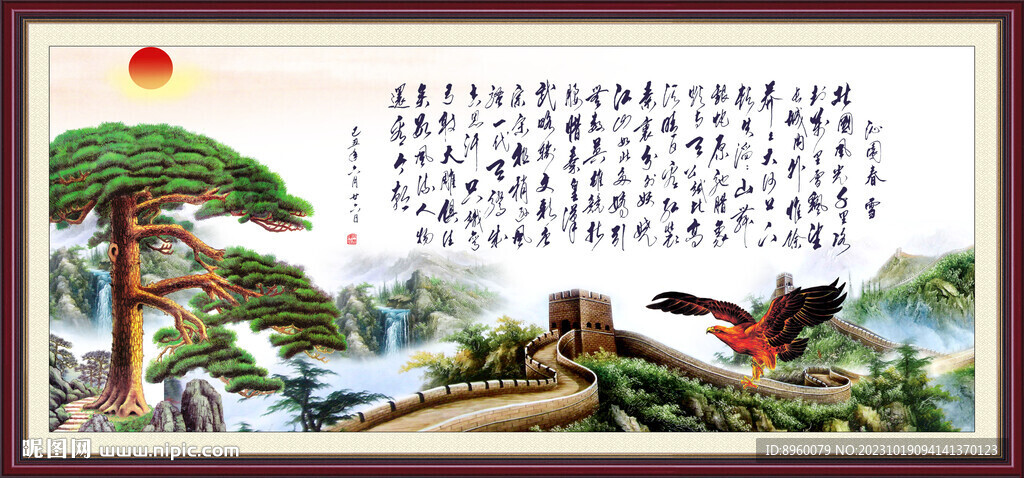 沁園春 雪
北國風光千里冰
封萬里雪飄望
长城内外惟馀
莽〻大河上下
頓失滔〻山舞
銀蛇原馳臘象
欲与天公試比高
須晴日看红装
素裹分外妖娆
江山如此多嬌引
無數英雄競折
腰惜秦皇漢
武略输文彩唐
宗宋祖稍逊風
骚一代天驕成
吉思汗只識彎
弓射大雕俱往
矣數風流人物
還看今朝
己丑年六月廿六日
昵图网 www.nipic.com
ID:8960079 NO:20231019094141370123